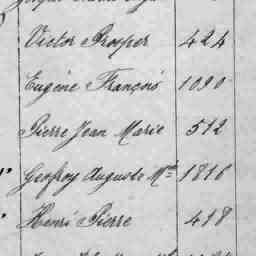 Victor Prosper 424
Eugène François 1090
Pierre Jean Marie 512
Geofroy Auguste Mie 1816
Henri Pierre 418